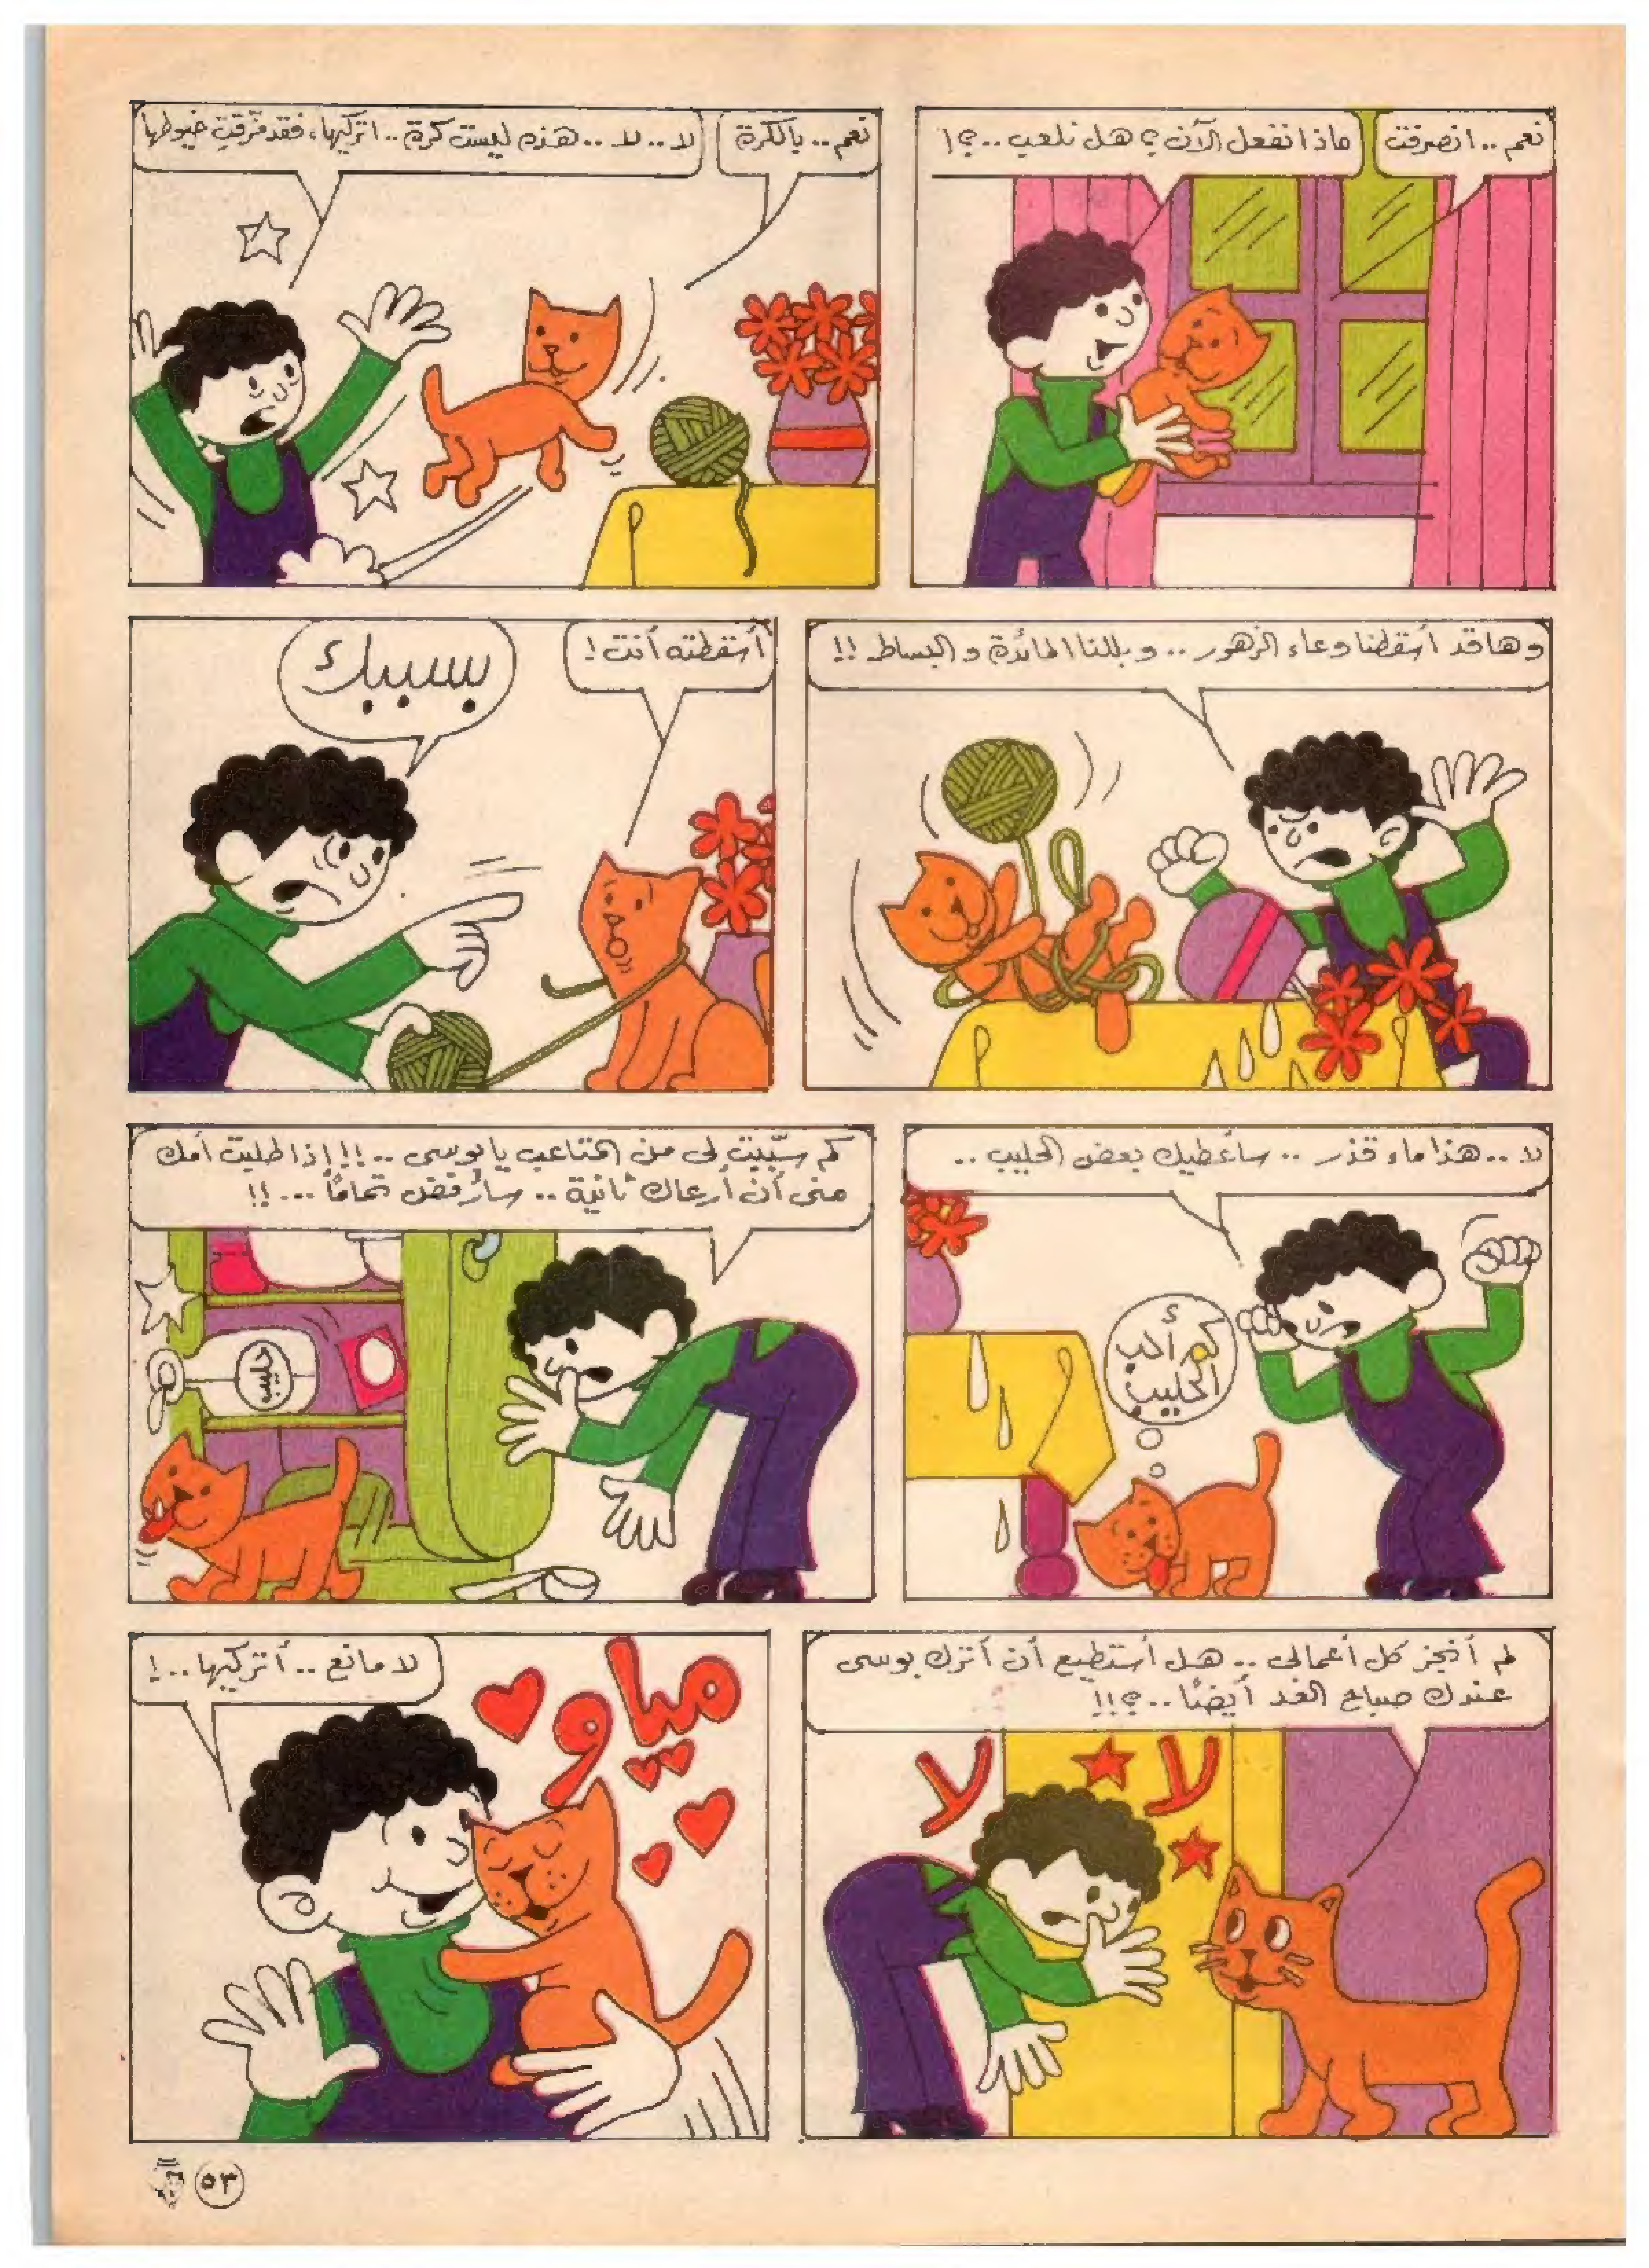 نعم .. انصرفت
ماذا نفعل الآن ؟ هل نلعب ..؟!
نعم .. بالكرة
لا .. لا .. هذه ليست كرة .. اتركيها، فقد مزقتِ خيوطها
وها قد أسقطنا وعاء الزهور .. وبللنا المائدة والبساط !!
أسقطته أنت !
بسببك
لا .. هذا ماء قذر .. سأعطيك بعض الحليب ..
كم أحب
الحليب
كم سبّبتِ لى من المتاعب يا بوسى ..!! إذا طلبت أمك
منى أن أرعاك ثانية .. سأرفض تمامًا ...!!
حليب
لم أنجز كل أعمالى .. هل أستطيع أن أترك بوسى
عندك صباح الغد أيضًا ..؟!!
لا
لا
مياو
لا مانع .. أتركيها ..!
٥٣